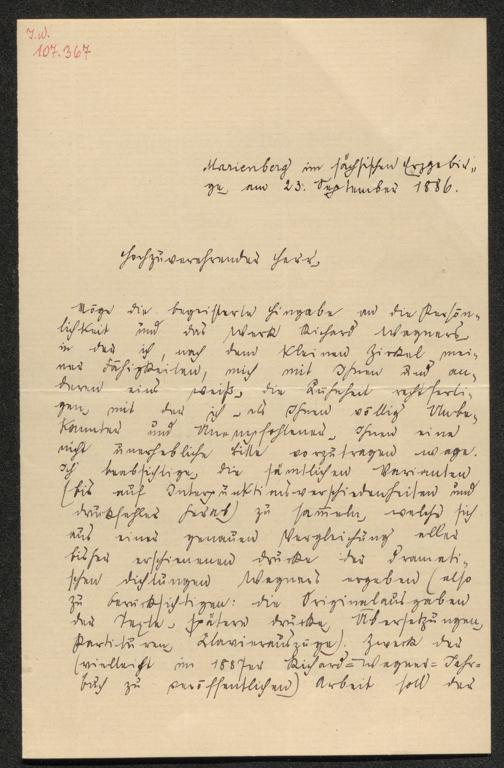 I.N.
107.367
Marienberg im sächsischen Erzgebir-
ge, am 23. September 1886.
Hochzuverehrender Herr,
Möge die begeisterte Hingabe an die Persön-
lichkeit und das Werk Richard Wagners,
in der ich, nach dem kleinen Zirkel mei-
ner Fähigkeiten, mich mit Ihnen und an-
deren eins weiß, die Kühnheit rechtferti-
gen, mit der ich, als Ihnen völlig Unbe-
kannter und Unempfohlener, Ihnen eine
nicht unerhebliche Bitte vorzutragen wage.
Ich beabsichtige, die sämtlichen Varianten
(bis auf Interpunktionsverschiedenheiten und
Druckfehler herab) zu sam̅eln, welche sich
aus einer genauen Vergleichung aller
bisher erschienenen Drucke der Dramati-
schen Dichtungen Wagners ergeben (also
zu berücksichtigen: die Originalausgaben
der Texte, spätere Drucke, Übersetzungen,
Partituren, Clavierauszüge). Zweck der
(vielleicht im 1887er Richard-Wagner-Jahr-
buch zu veröffentlichen) Arbeit soll der